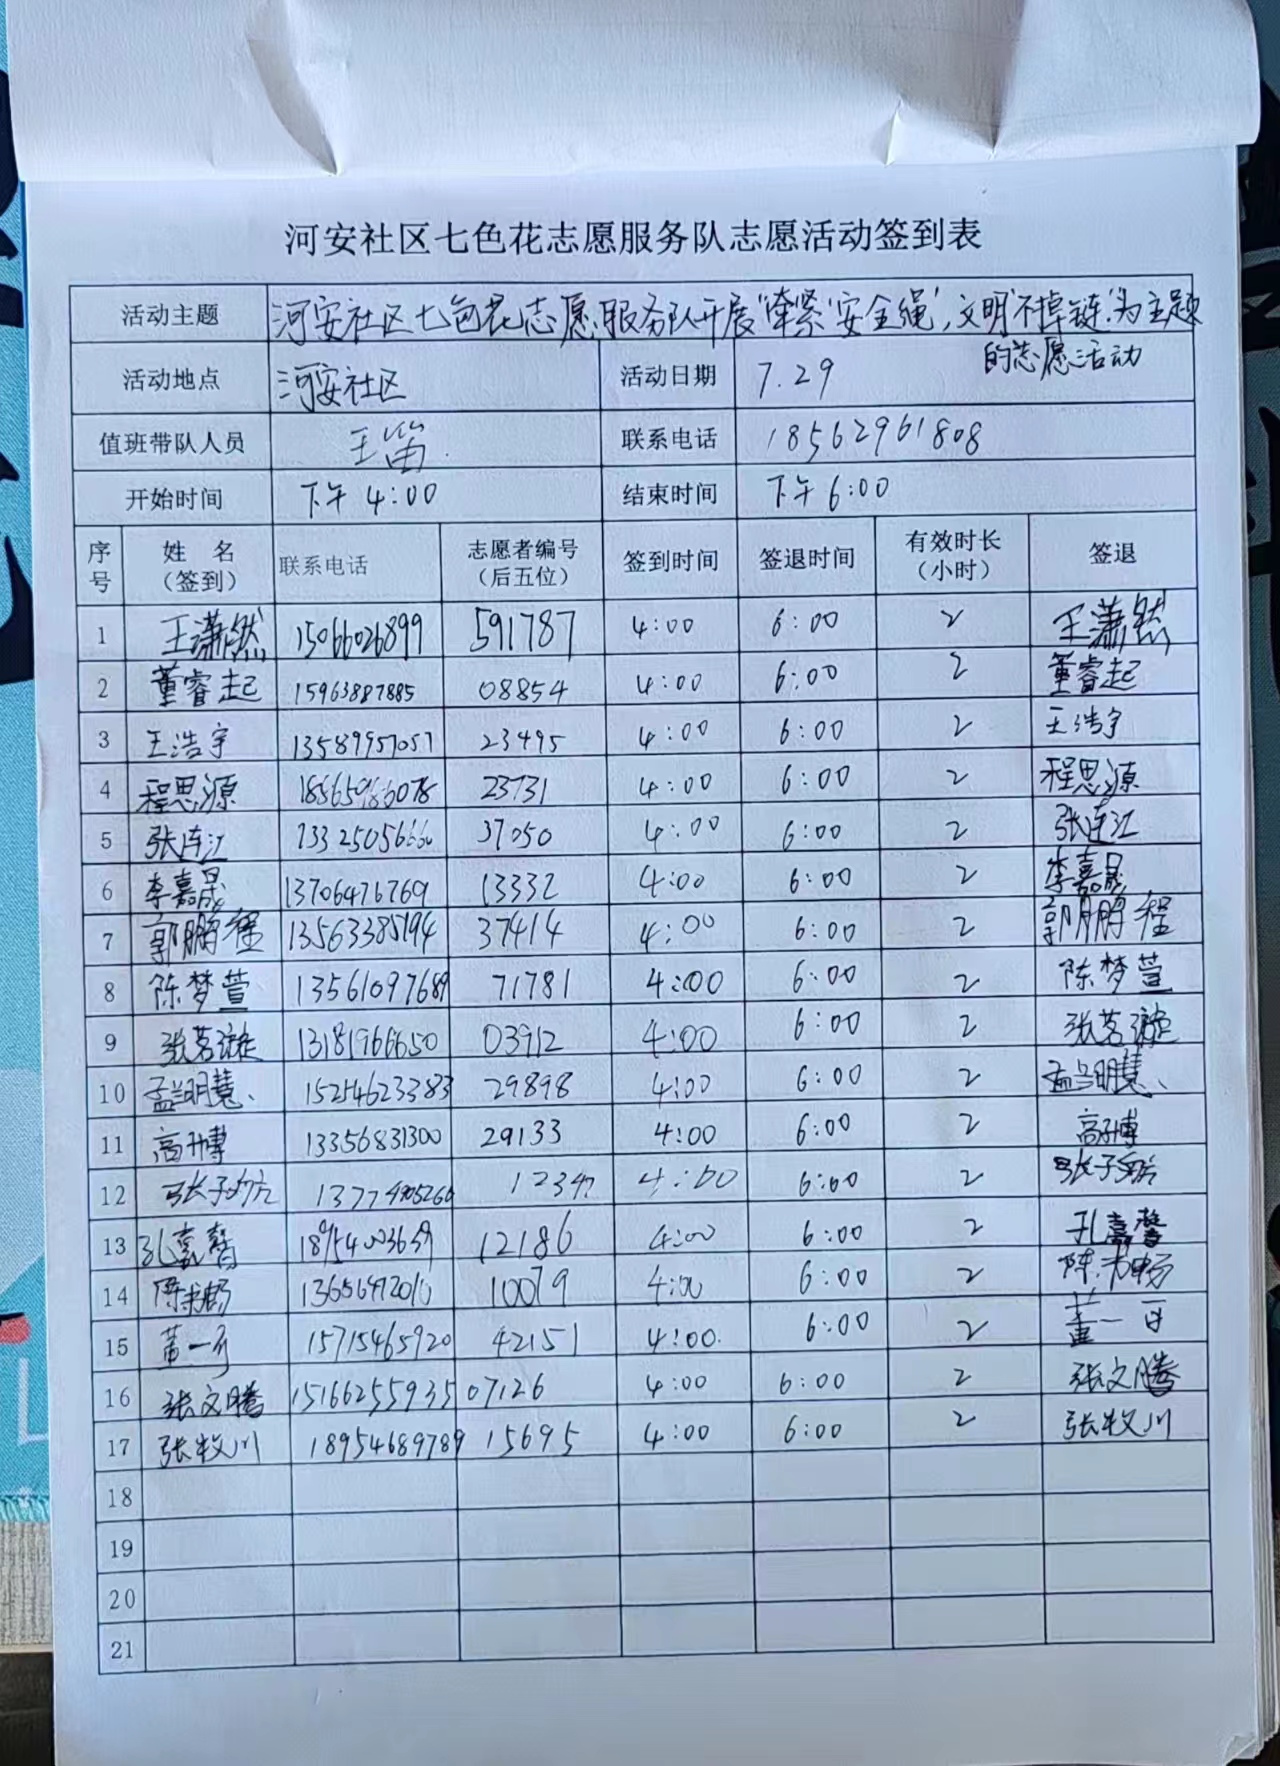 河安社区七色花志愿服务队志愿活动签到表
活动主题 河安社区七色花志愿服务队开展"牵紧'安全绳',文明'不掉链'"为主题
的志愿活动
活动地点 河安社区 活动日期 7.29
值班带队人员 王笛 联系电话 18562961808
开始时间 下午 4:00 结束时间 下午 6:00
序号 姓 名（签到） 联系电话 志愿者编号（后五位） 签到时间 签退时间 有效时长（小时） 签退
1 王潇然 15066026899 591787 4:00 6:00 2 王潇然
2 董睿起 15963887885 08854 4:00 6:00 2 董睿起
3 王浩宇 13589957057 23495 4:00 6:00 2 王浩宇
4 程思源 18565986078 23731 4:00 6:00 2 程思源
5 张连江 13325056666 37050 4:00 6:00 2 张连江
6 李嘉晟 13706476769 13332 4:00 6:00 2 李嘉晟
7 郭鹏程 13563385194 37414 4:00 6:00 2 郭鹏程
8 陈梦萱 13561097689 71781 4:00 6:00 2 陈梦萱
9 张茗漩 13181966650 03912 4:00 6:00 2 张茗漩
10 孟兰明慧 15254623383 29898 4:00 6:00 2 孟兰明慧
11 高子博 13356831300 29133 4:00 6:00 2 高子博
12 张子昀 4:00 6:00 2 张子昀
13 孔嘉馨 18954003659 12186 4:00 6:00 2 孔嘉馨
14 陈书畅 13656472010 10079 4:00 6:00 2 陈书畅
15 董一可 15715465920 42151 4:00 6:00 2 董一可
16 张文腾 15166255935 07126 4:00 6:00 2 张文腾
17 张牧川 18954689789 15695 4:00 6:00 2 张牧川
18
19
20
21